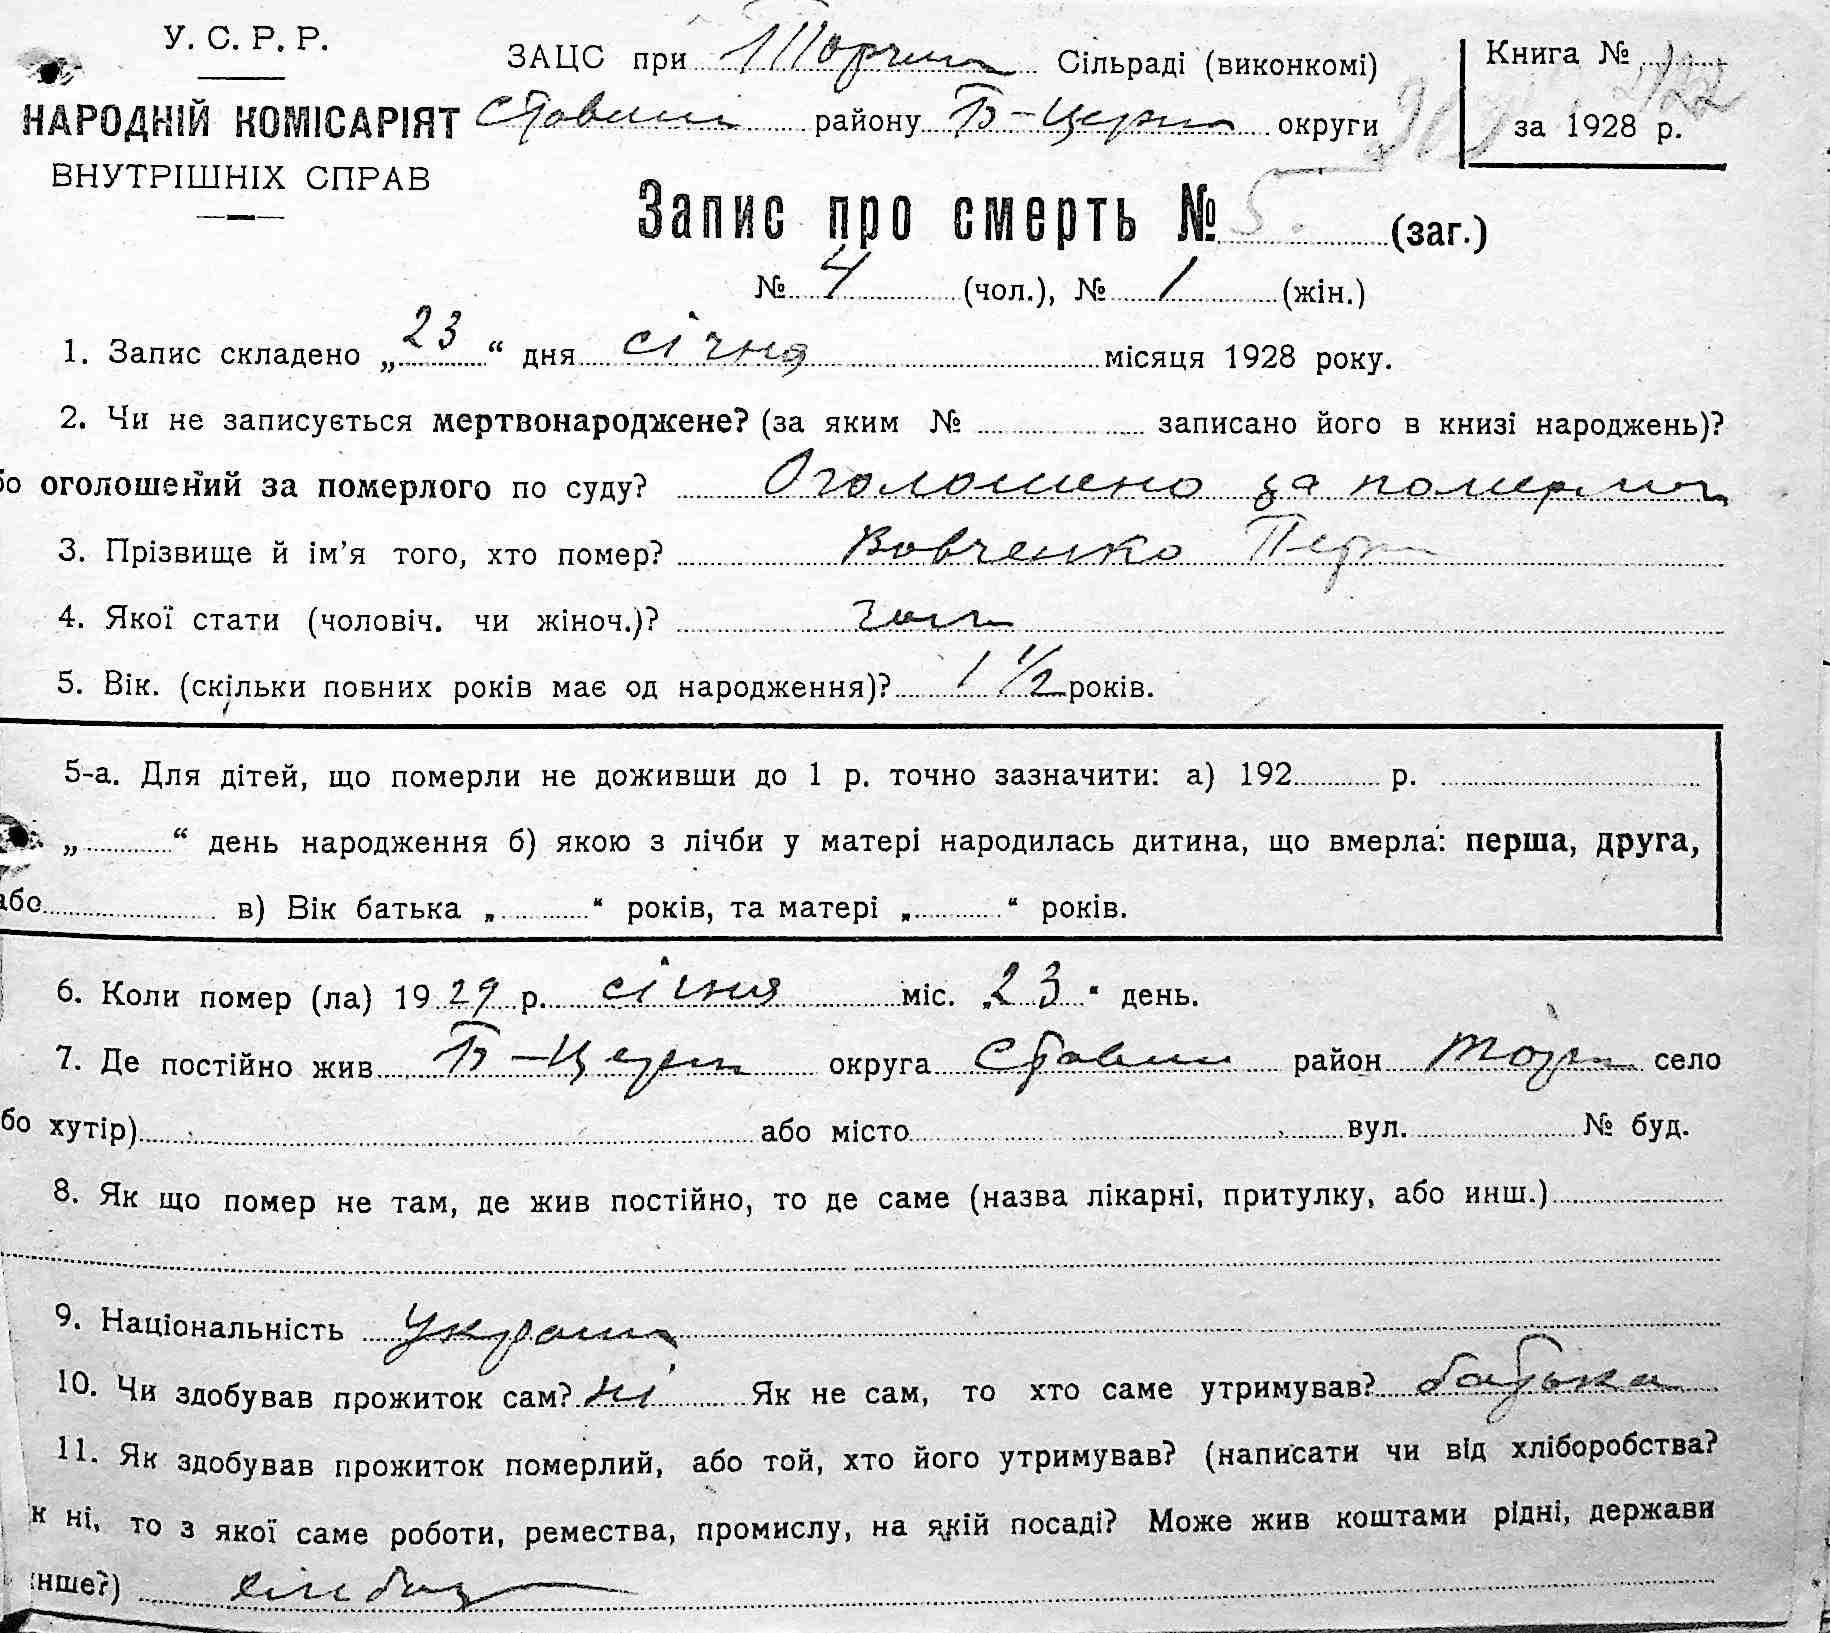 У. С. Р. Р.
НАРОДНІЙ КОМІСАРІЯТ
ВНУТРІШНІХ СПРАВ
ЗАЦС при Торчиц Сільраді (виконкомі)
Ставищ району Б-Церкв округи
Книга №
за 1928 р.
Запис про смерть № 5. (заг.)
№ 4 (чол.), № 1 (жін.)
1. Запис складено „23“ дня січня місяця 1928 року.
2. Чи не записується мертвонароджене? (за яким № записано його в книзі народжень)?
бо оголошений за померлого по суду? Оголошено за померл
3. Прізвище й ім’я того, хто помер? Вовченко Петр
4. Якої стати (чоловіч. чи жіноч.)? чол
5. Вік. (скільки повних років має од народження)? 1 1/2 років.
5-а. Для дітей, що померли не доживши до 1 р. точно зазначити: а) 192 р.
„ “ день народження б) якою з лічби у матері народилась дитина, що вмерла: перша, друга,
або в) Вік батька „ “ років, та матері „ “ років.
6. Коли помер (ла) 1929 р. січня міс. „23“ день.
7. Де постійно жив Б-Церкв округа Ставищ район Торч село
бо хутір) або місто вул. № буд.
8. Як що помер не там, де жив постійно, то де саме (назва лікарні, притулку, або инш.)
9. Національність Україн
10. Чи здобував прожиток сам? ні Як не сам, то хто саме утримував? батько
11. Як здобував прожиток померлий, або той, хто його утримував? (написати чи від хліборобства?
к ні, то з якої саме роботи, ремества, промислу, на якій посаді? Може жив коштами рідні, держави
інше?)